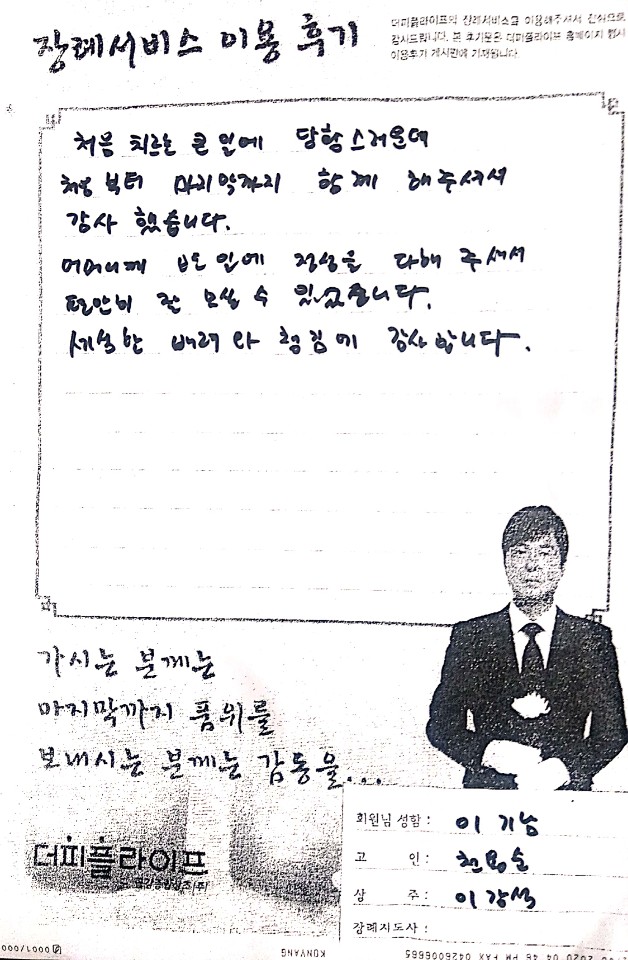 장례서비스 이용 후기
더피플라이프의 장례서비스를 이용해주셔서 진심으로
감사드립니다. 본 후기문은 더피플라이프 홈페이지 행사
이용후기 게시판에 기재됩니다.
처음 치르는 큰 일에 당황스러운데
처음부터 마지막까지 함께 해주셔서
감사 했습니다.
어머니께 보는 일에 정성을 다해 주셔서
편안히 잘 모실 수 있었습니다.
세심한 배려와 섬김에 감사합니다.
가시는 분께는
마지막까지 품위를
보내시는 분께는 감동을...
더피플라이프
회원님 성함 : 이기남
고 인 :
상 주 : 이강석
장례지도사 :
KONYANG
2020 04:46 PM FAX 0426006665
0001/000